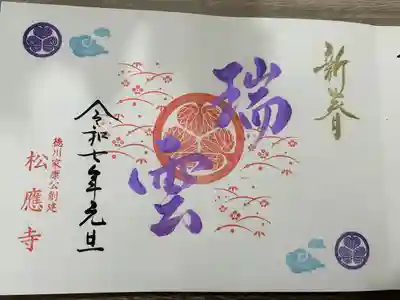 新春
瑞雲
令和七年元旦
徳川家康公創建
松應寺